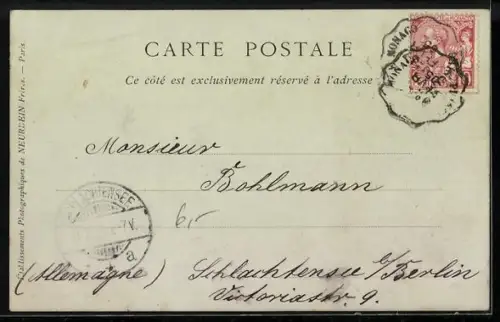 CARTE POSTALE
Ce côté est exclusivement réservé à l'adresse
MONACO
Monsieur
Bohlmann
SCHLACHTENSEE
7-V.
a
6,-
(Allemagne) Schlachtensee b/Berlin
Victoriastr. 9.
Etablissements Photographiques de NEURDEIN Frères. — Paris